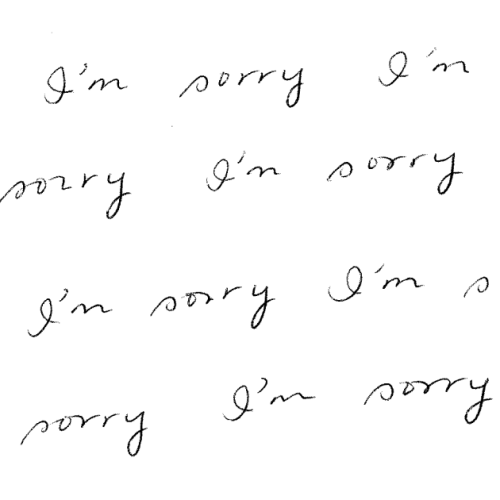 I'm sorry I'm
sorry I'm sorry
I'm sorry I'm s
sorry I'm sorry